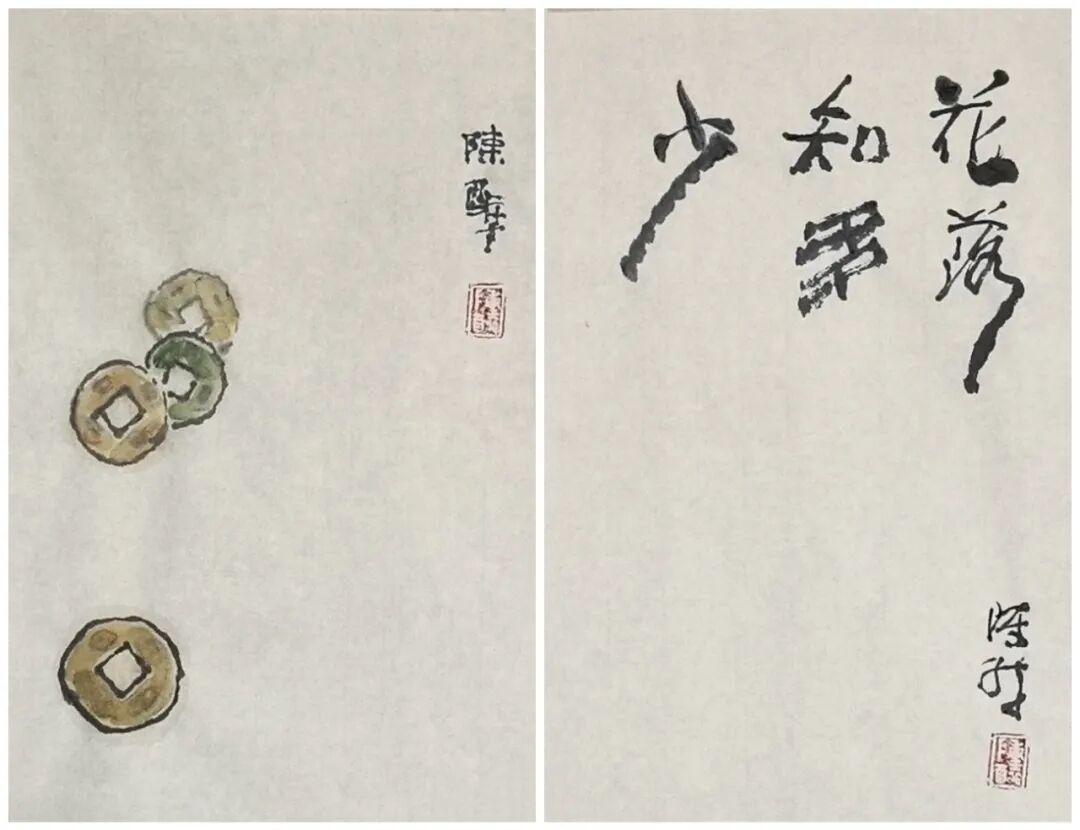 陳醉
花落
知多
少
陳醉